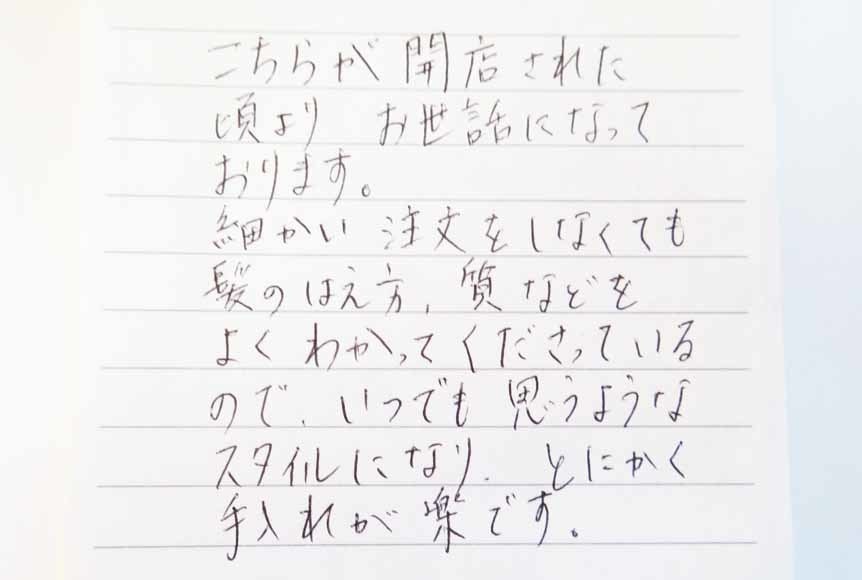 こちらが開店された
頃より お世話になって
おります。
細かい注文をしなくても
髪のはえ方、質などを
よくわかってくださっている
ので、いつでも思うような
スタイルになり、とにかく
手入れが楽です。